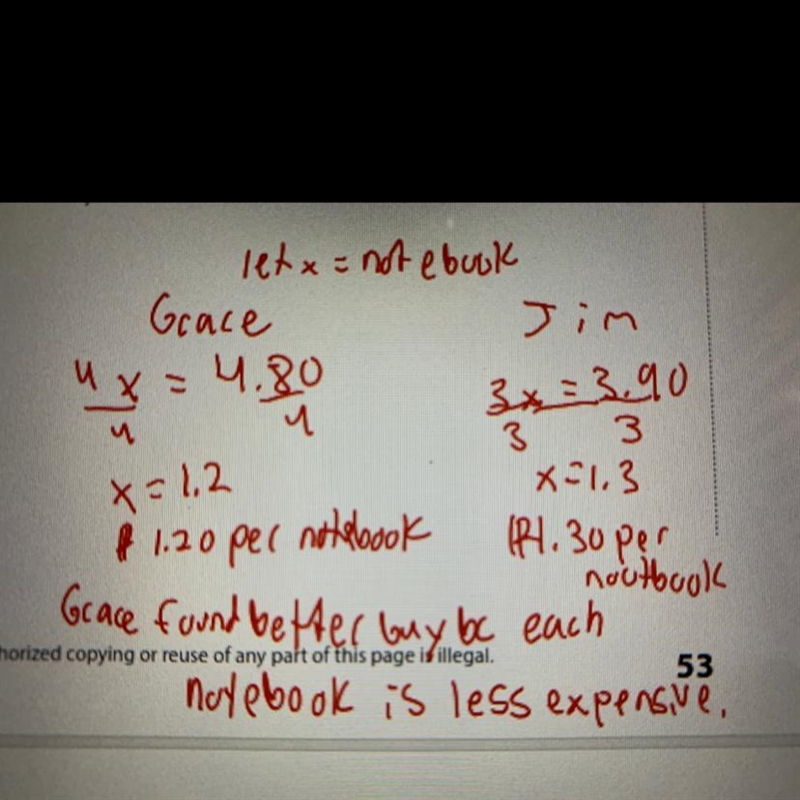 let x = notebook
Grace Jim
4x = 4.80 3x = 3.90
4 4 3 3
x = 1.2 x = 1.3
$ 1.20 per notebook 1.30 per
noutbook
Grace found better buy bc each
horized copying or reuse of any part of this page is illegal. 53
notebook is less expensive.